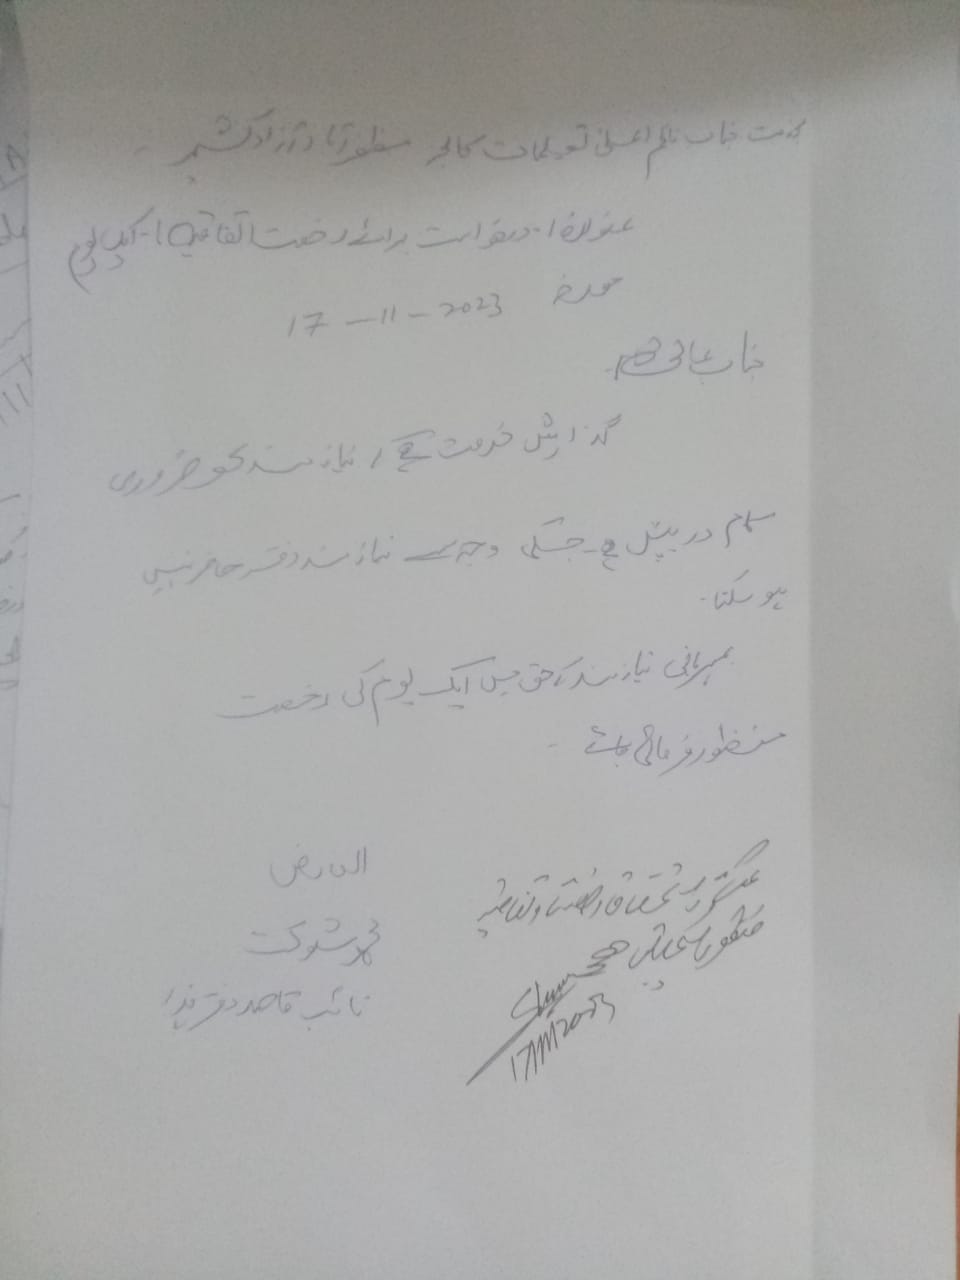 بخدمت جناب ناظم اعلیٰ تعلیمات کالجز مظفرآباد آزاد کشمیر۔
عنوان:- درخواست برائے رخصت اتفاقیہ 1- ایک یوم
مورخہ 17-11-2023
جناب عالی!
گذارش خدمت ہے کہ نیازمند کو ضروری
کام درپیش ہے۔ جسکی وجہ سے نیازمند دفتر حاضر نہیں
ہو سکتا۔
بمہربانی نیازمند کے حق میں ایک یوم کی رخصت
منظور فرمائی جائے۔
العارض
محمد شوکت
نائب قاصد دفتر ہذا
رخصت اتفاقیہ
منظور
17/11/2023